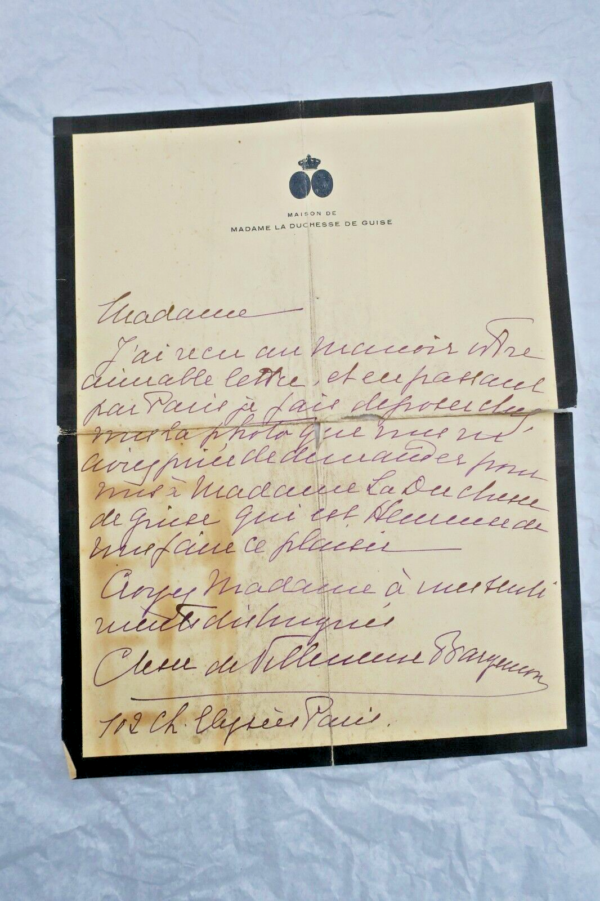 MAISON DE
MADAME LA DUCHESSE DE GUISE
Madame
J'ai recu au manoir votre
aimable lettre, et en passant
par Paris je fais deposer chez
vous la photo que vous m'
aviez priée de demander pour
vous à Madame La Duchesse
de Guise qui est Heureuse de
vous faire ce plaisir
Croyez Madame à mes senti
ments distingués
Ctesse de Villeneuve Bargemon
102 Ch. Elysées Paris.